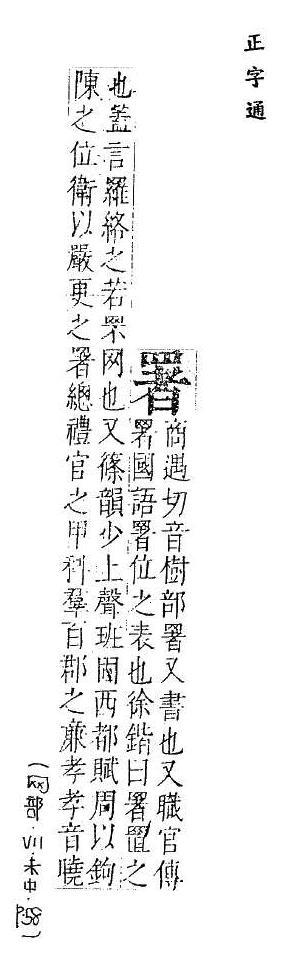 正字通
署
商遇切音樹部署又書也又職官傳
署國語署位之表也徐鍇曰署置之
也蓋言羅絡之若罘网也又篠韻少上聲班固西都賦周以鉤
陳之位衛以嚴更之署總禮官之甲科羣百郡之廉孝孝音曉
(网部·VII·未中·P.58)